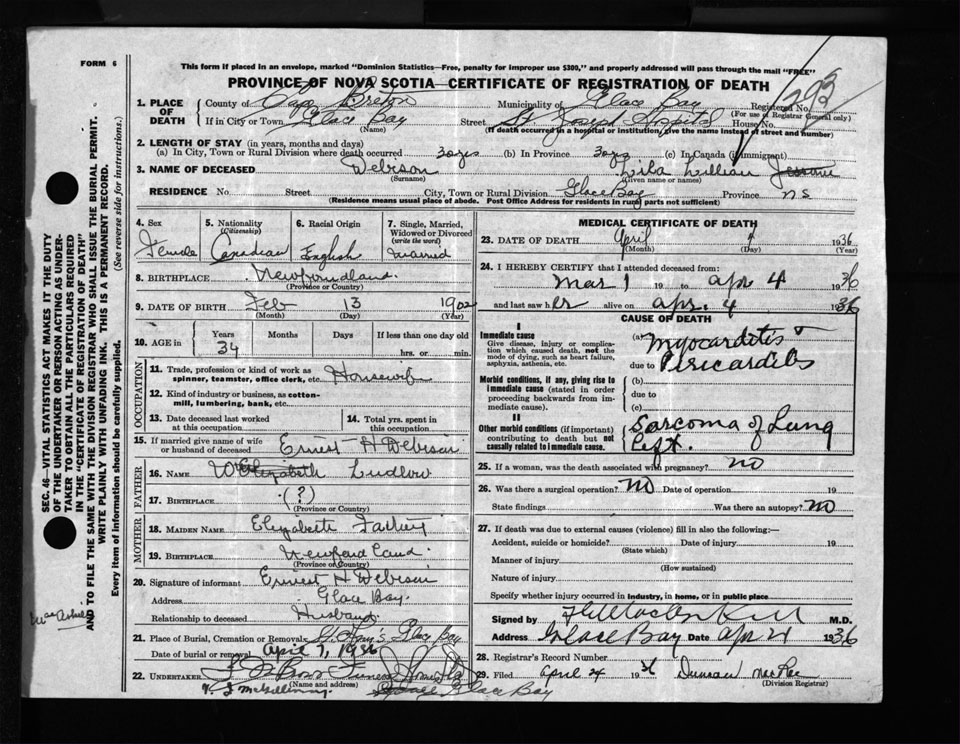 FORM 6
This form if placed in an envelope, marked "Dominion Statistics—Free, penalty for improper use $300," and properly addressed will pass through the mail "FREE"
PROVINCE OF NOVA SCOTIA—CERTIFICATE OF REGISTRATION OF DEATH
1. PLACE OF DEATH
County of Cape Breton Municipality of Glace Bay Registered No.
(For use of Registrar General only)
If in City or Town Glace Bay Street St. Joseph Hospital House No.
(Name) (If death occurred in a hospital or institution, give the name instead of street and number)
2. LENGTH OF STAY (in years, months and days)
(a) In City, Town or Rural Division where death occurred (b) In Province (c) In Canada (if immigrant)
3. NAME OF DECEASED William
(Surname) (Given name or names)
RESIDENCE No. Street City, Town or Rural Division Glace Bay Province N S
(Residence means usual place of abode. Post Office Address for residents in rural parts not sufficient)
4. Sex Female
5. Nationality (Citizenship) Canadian
6. Racial Origin English
7. Single, Married, Widowed or Divorced (write the word) Married
8. BIRTHPLACE Newfoundland
(Province or Country)
9. DATE OF BIRTH Feb 13 1902
(Month) (Day) (Year)
10. AGE in Years 34 Months Days If less than one day old
hrs. or min.
OCCUPATION
11. Trade, profession or kind of work as spinner, teamster, office clerk, etc. Housewife
12. Kind of industry or business, as cotton-mill, lumbering, bank, etc.
13. Date deceased last worked at this occupation
14. Total yrs. spent in this occupation
15. If married give name of wife or husband of deceased Ernest H
FATHER
16. NAME Ludlow
17. BIRTHPLACE (?)
(Province or Country)
MOTHER
18. MAIDEN NAME Elizabeth
19. BIRTHPLACE Newfoundland
(Province or Country)
20. Signature of informant Ernest H
Address Glace Bay
Relationship to deceased Husband
21. Place of Burial, Cremation or Removal Glace Bay
Date of burial or removal April 7, 1936
22. UNDERTAKER
(Name and address)
Glace Bay
MEDICAL CERTIFICATE OF DEATH
23. DATE OF DEATH April 1936
(Month) (Day) (Year)
24. I HEREBY CERTIFY that I attended deceased from:
Mar 1 19 to Apr 4 1936
and last saw her alive on Apr. 4 1936
CAUSE OF DEATH
I
Immediate cause
Give disease, injury or complication which caused death, not the mode of dying, such as heart failure, asphyxia, asthenia, etc.
(a) Myocarditis
due to Pericarditis
Morbid conditions, if any, giving rise to immediate cause (stated in order proceeding backwards from immediate cause)
(b)
due to
(c)
II
Other morbid conditions (if important) contributing to death but not causally related to immediate cause.
Sarcoma of Lung
Left.
25. If a woman, was the death associated with pregnancy? No
26. Was there a surgical operation? No Date of operation 19
State findings Was there an autopsy? No
27. If death was due to external causes (violence) fill in also the following:—
Accident, suicide or homicide? Date of injury 19
(State which)
Manner of injury
(How sustained)
Nature of injury
Specify whether injury occurred in industry, in home, or in public place
Signed by M.D.
Address Glace Bay Date Apr 4 1936
28. Registrar's Record Number
29. Filed April 24 1936 Duncan MacRae
(Division Registrar)
SEC. 46—VITAL STATISTICS ACT MAKES IT THE DUTY OF THE UNDERTAKER OR PERSON ACTING AS UNDERTAKER TO OBTAIN ALL THE PARTICULARS REQUIRED IN THE "CERTIFICATE OF REGISTRATION OF DEATH" AND TO FILE THE SAME WITH THE DIVISION REGISTRAR WHO SHALL ISSUE THE BURIAL PERMIT.
WRITE PLAINLY WITH UNFADING INK. THIS IS A PERMANENT RECORD.
Every item of information should be carefully supplied. (See reverse side for instructions.)